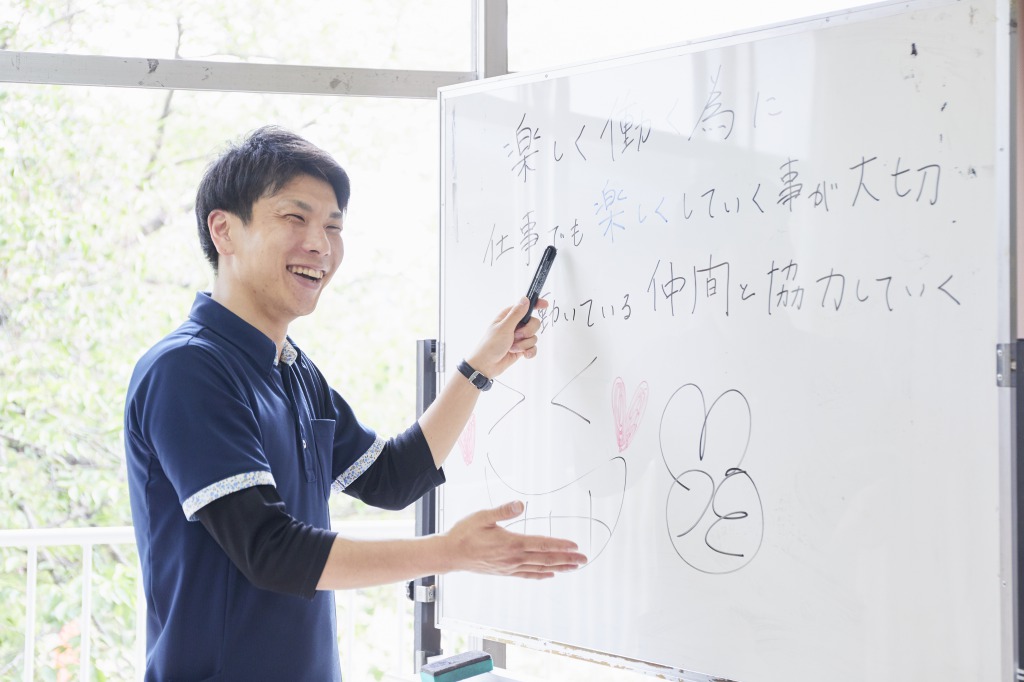 楽しく働く為に
仕事でも楽しくしていく事が大切
働いている仲間と協力していく